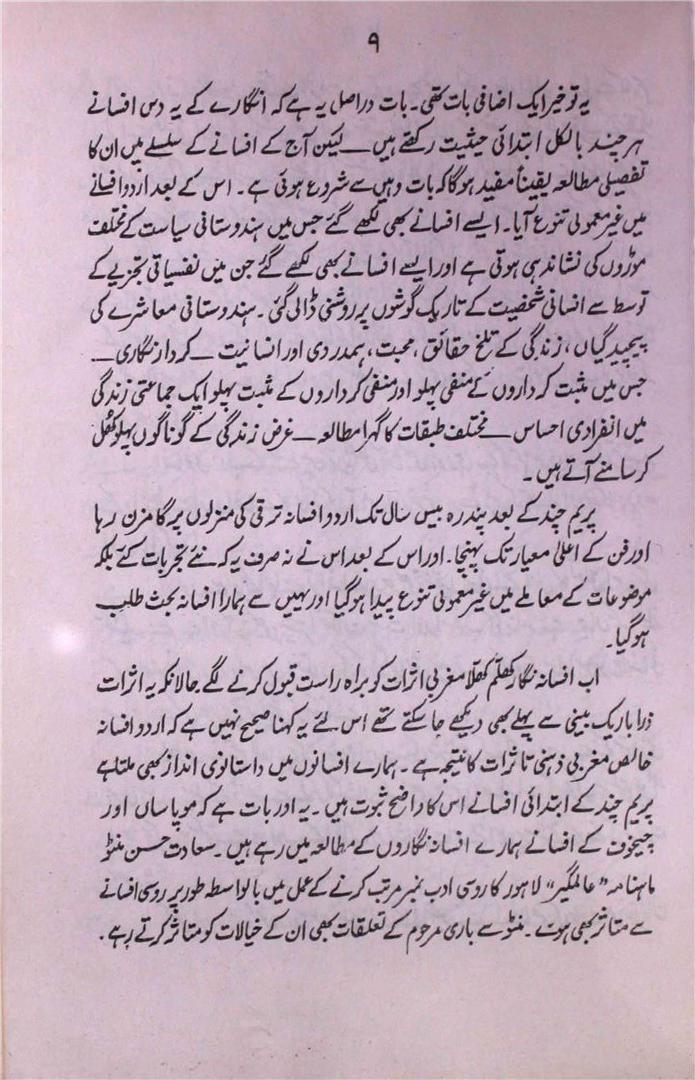 ۹
یہ تو خیر ایک اضافی بات تھی۔ بات دراصل یہ ہے کہ انگارے کے یہ دس افسانے
ہر چند بالکل ابتدائی حیثیت رکھتے ہیں ــــ لیکن آج کے افسانے کے سلسلے میں ان کا
تفصیلی مطالعہ یقیناً مفید ہوگا کہ بات وہیں سے شروع ہوئی ہے۔ اس کے بعد اردو افسانے
میں غیر معمولی تنوع آیا۔ ایسے افسانے بھی لکھے گئے جس میں ہندوستانی سیاست کے مختلف
موڑوں کی نشاندہی ہوتی ہے اور ایسے افسانے بھی لکھے گئے جن میں نفسیاتی تجزیے کے
توسط سے انسانی شخصیت کے تاریک گوشوں پر روشنی ڈالی گئی۔ ہندوستانی معاشرے کی
پیچیدگیاں، زندگی کے تلخ حقائق، محبت، ہمدردی اور انسانیت ــــ کردار نگاری ــــ
جس میں مثبت کرداروں کے منفی پہلو اور منفی کرداروں کے مثبت پہلو ایک جماعتی زندگی
میں انفرادی احساس ــــ مختلف طبقات کا گہرا مطالعہ ــــ غرض زندگی کے گوناگوں پہلو کھل
کر سامنے آتے ہیں۔
پریم چند کے بعد پندرہ بیس سال تک اردو افسانہ ترقی کی منزلوں پر گامزن رہا
اور فن کے اعلیٰ معیار تک پہنچا۔ اور اس کے بعد اس نے نہ صرف یہ کہ نئے تجربات کئے بلکہ
موضوعات کے معاملے میں غیر معمولی تنوع پیدا ہوگیا اور یہیں سے ہمارا افسانہ بحث طلب
ہوگیا۔
اب افسانہ نگار کھلم کھلا مغربی اثرات کو براہ راست قبول کرنے لگے حالانکہ یہ اثرات
ذرا باریک بینی سے پہلے بھی دیکھے جا سکتے تھے اس لئے یہ کہنا صحیح نہیں ہے کہ اردو افسانہ
خالص مغربی ذہنی تاثرات کا نتیجہ ہے۔ ہمارے افسانوں میں داستانوی انداز بھی ملتا ہے
پریم چند کے ابتدائی افسانے اس کا واضح ثبوت ہیں۔ یہ اور بات ہے کہ موپاساں اور
چیخوف کے افسانے ہمارے افسانہ نگاروں کے مطالعہ میں رہے ہیں۔ سعادت حسن منٹو
ماہنامہ "عالمگیر" لاہور کا روسی ادب نمبر مرتب کرنے کے عمل میں بالواسطہ طور پر روسی افسانے
سے متاثر بھی ہوئے۔ منٹو سے باری مرحوم کے تعلقات بھی ان کے خیالات کو متاثر کرتے رہے۔